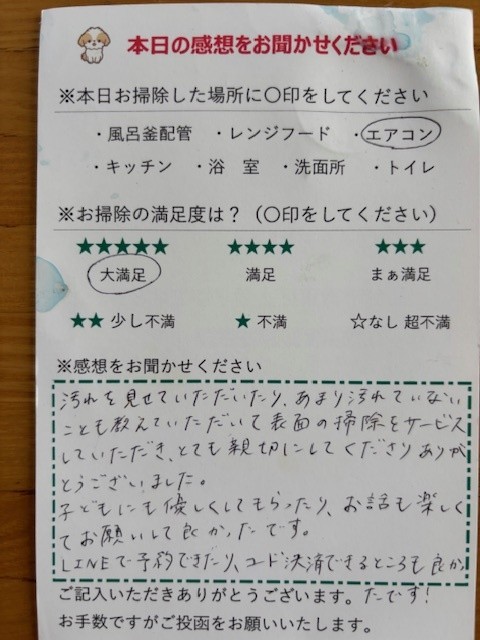 本日の感想をお聞かせください
※本日お掃除した場所に〇印をしてください
・風呂釜配管 ・レンジフード ・エアコン
・キッチン ・浴 室 ・洗面所 ・トイレ
※お掃除の満足度は？（〇印をしてください）
★★★★★ ★★★★ ★★★
大満足 満足 まぁ満足
★★ 少し不満 ★ 不満 ☆なし 超不満
※感想をお聞かせください
汚れを見せていただいたり、あまり汚れていない
ことも教えていただいて表面の掃除をサービス
していただき、とても親切にしてくださりありが
とうございました。
子どもにも優しくしてもらったり、お話も楽しく
てお願いして良かったです。
LINEで予約できたり、コード決済できるところも良か
ったです！
ご記入いただきありがとうございます。
お手数ですがご投函をお願いいたします。